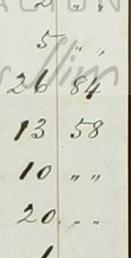 5 " "
26 84
13 58
10 " "
20 " "